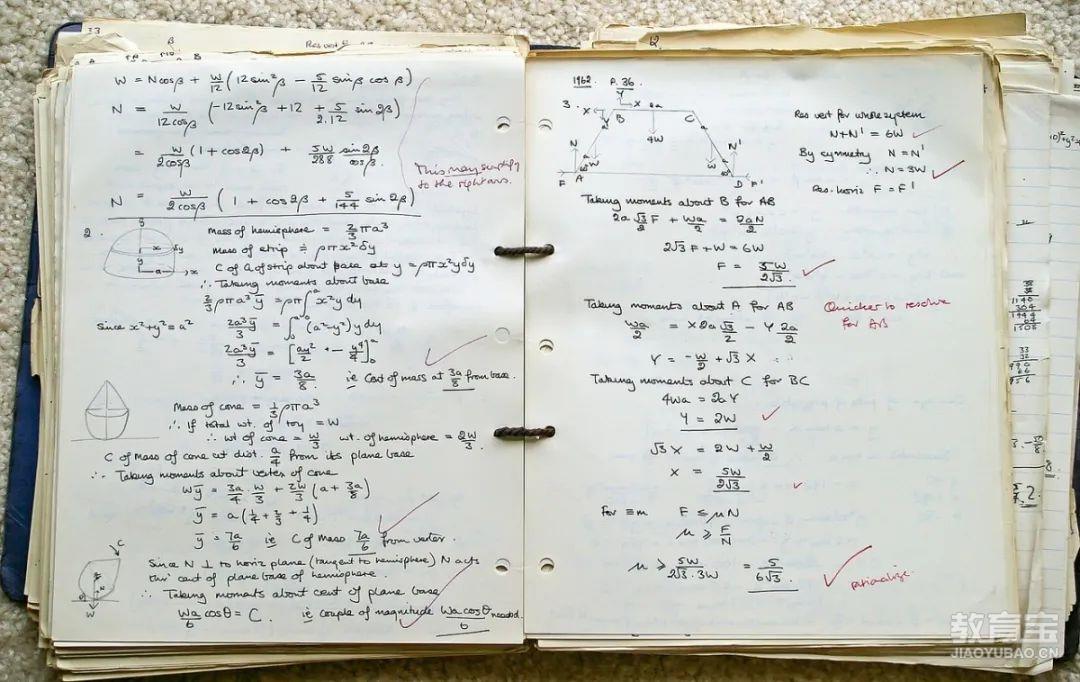 W = Ncosβ + W/12 (12sin²β − 5/12 sinβ cosβ)
N = W/12cosβ (−12sin²β + 12 + 5/2.12 sin2β)
= W/2cosβ (1 + cos2β) + 5W/288 sin2β/cosβ.
This may simplify
to the right ans.
N = W/2cosβ (1 + cos2β + 5/144 sin2β)
2.
Mass of hemisphere = 2/3 πa³
Mass of strip ≡ ρπx²δy
C of G of strip about base at y = ρπx²yδy
∴ Taking moments about base
2/3 ρπa³ȳ = ρπ∫x²y dy
Since x²+y² = a² 2a³ȳ/3 = ∫(a²−y²)y dy
2a³ȳ/3 = [ay²/2 − y⁴/4]
∴ ȳ = 3a/8. ie Cent of mass at 3a/8 from base.
Mass of cone = 1/3 ρπa³
∴ If total wt. of toy = W
∴ wt of cone = W/3 wt. of hemisphere = 2W/3.
C of Mass of cone at dist. a/4 from its plane base
∴ Taking moments about vertex of cone
Wȳ = 3a/4 . W/3 + 2W/3 (a + 3a/8)
ȳ = a(1/4 + 2/3 + 1/4)
ȳ = 7a/6 ie C of mass 7a/6 from vertex.
C
W
Since N ⊥ to horiz plane (tangent to hemisphere) N acts
thro' cent of plane base of hemisphere.
∴ Taking moments about cent of plane base
Wa/6 cosθ = C. ie couple of magnitude Wa cosθ/6 needed.
1962. P. 36.
3.
Y
X X 2a
B C
4W
N N'
W W
F A D F'
Res vert for whole system
N+N' = 6W
By symmetry N = N'
∴ N = 3W
Res. horiz F = F'
Taking moments about B for AB
2a √3/2 F + Wa/2 = 2aN/2
2√3 F + W = 6W
F = 5W/2√3
Taking moments about A for AB
Quicker to resolve
for AB
Wa/2 = X2a √3/2 − Y 2a/2
Y = −W/2 + √3 X
Taking moments about C for BC
4Wa = 2aY
Y = 2W
√3 X = 2W + W/2
X = 5W/2√3
For ≡m F ≤ μN
μ ≥ F/N
μ ≥ 5W/2√3.3W = 5/6√3.
rationalize.
教育宝
JIAOYUBAO.CN